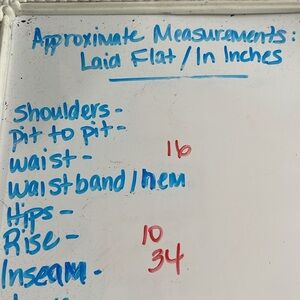 Approximate Measurements:
Laid Flat/In Inches
Shoulders -
pit to pit -
waist - 16
waistband/hem
Hips -
Rise - 10
Inseam - 34